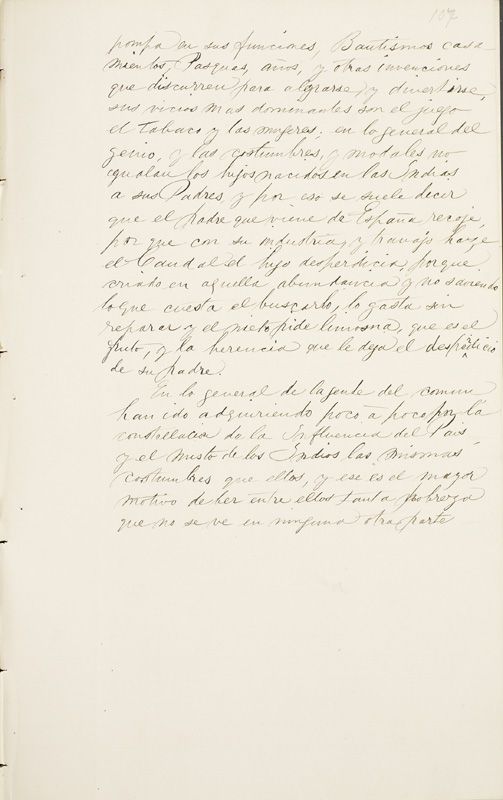 107
pompa en sus funciones, Bautismos casa
mientos, Pasquas, años, y otras invenciones
que discurren para alegrarse, y divertirse,
sus vicios mas dominantes son el juego
el tabaco y las mugeres; en lo general del
genio, y las costumbres, y modales no
igualan los hijos nacidos en las Indias
a sus Padres y por eso se suele decir
que el padre que viene de España recoje,
por que con su industria, y travajo haze
el Caudal el hijo desperdicia, porque
criado en aquella abundancia y no saviendo
lo que cuesta el buscarlo, lo gasta sin
reparar y el nieto pide limosna, que es el
fruto, y la herencia que le deja el desperdicio
de su padre.
En lo general de la gente del comun
han ido adquiriendo poco, a poco por la
constellacion de la Influencia del Pais
y el misto de los Indios las mismas
costumbres que ellos, y ese es el mayor
motivo de ber entre ellos tanta pobreza
que no se ve en ninguna otra parte